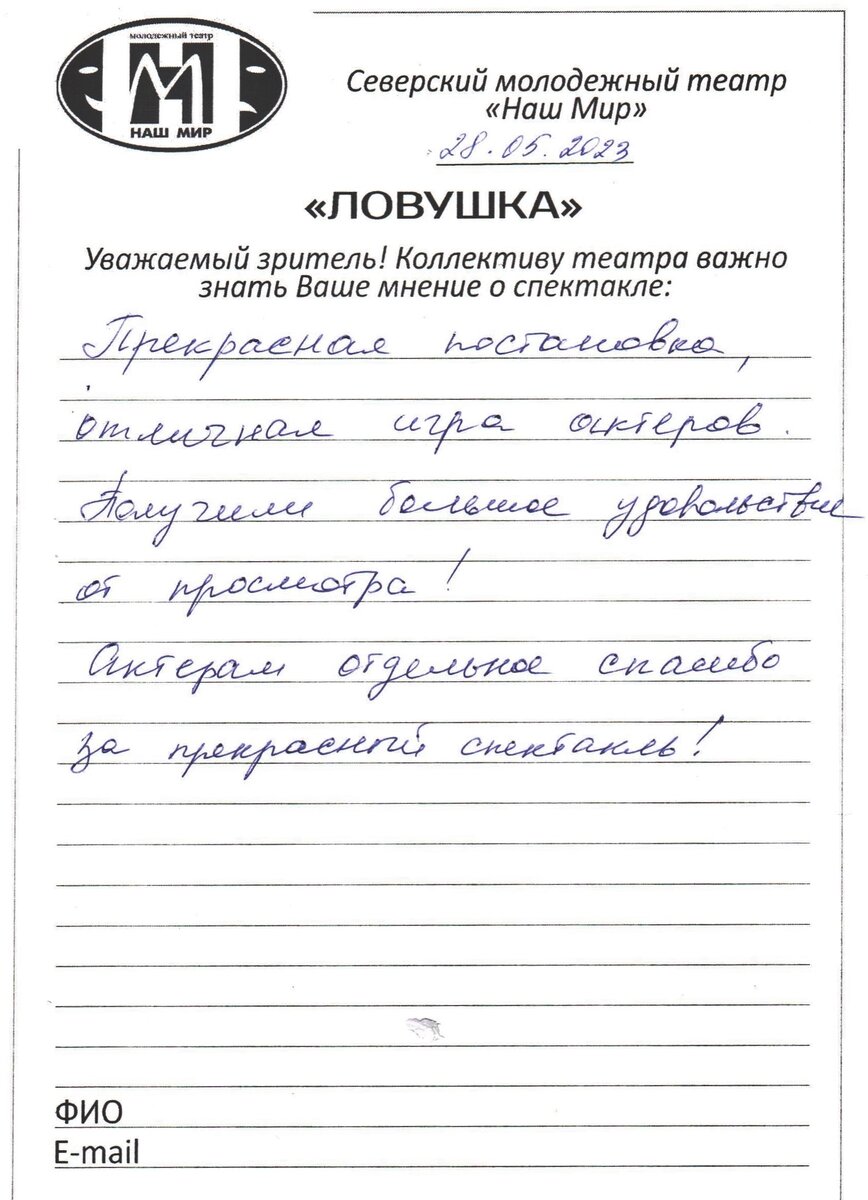 молодежный театр
НАШ МИР
Северский молодежный театр
«Наш Мир»
28.05.2023
«ЛОВУШКА»
Уважаемый зритель! Коллективу театра важно
знать Ваше мнение о спектакле:
Прекрасная постановка,
отличная игра актеров.
Получили большое удовольствие
от просмотра!
Актерам отдельное спасибо
за прекрасный спектакль!
ФИО
E-mail